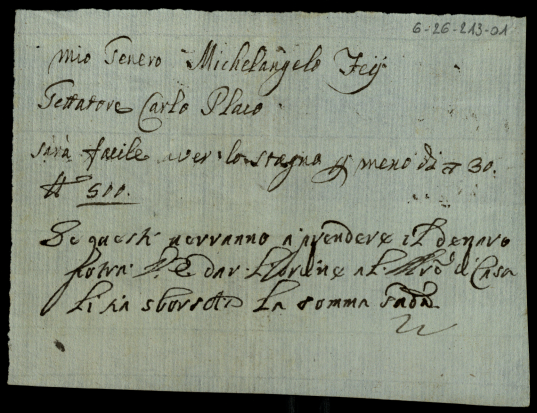 6-26-213-01
mio Genero Michelangelo Feÿ
Gettatore Carlo Placo
sarà facile aver lo stagno meno di 30.
500.
Se questi verranno a prendere il denaro
potrà dar l'ordine al di Casa
li sia sborsata la somma sada